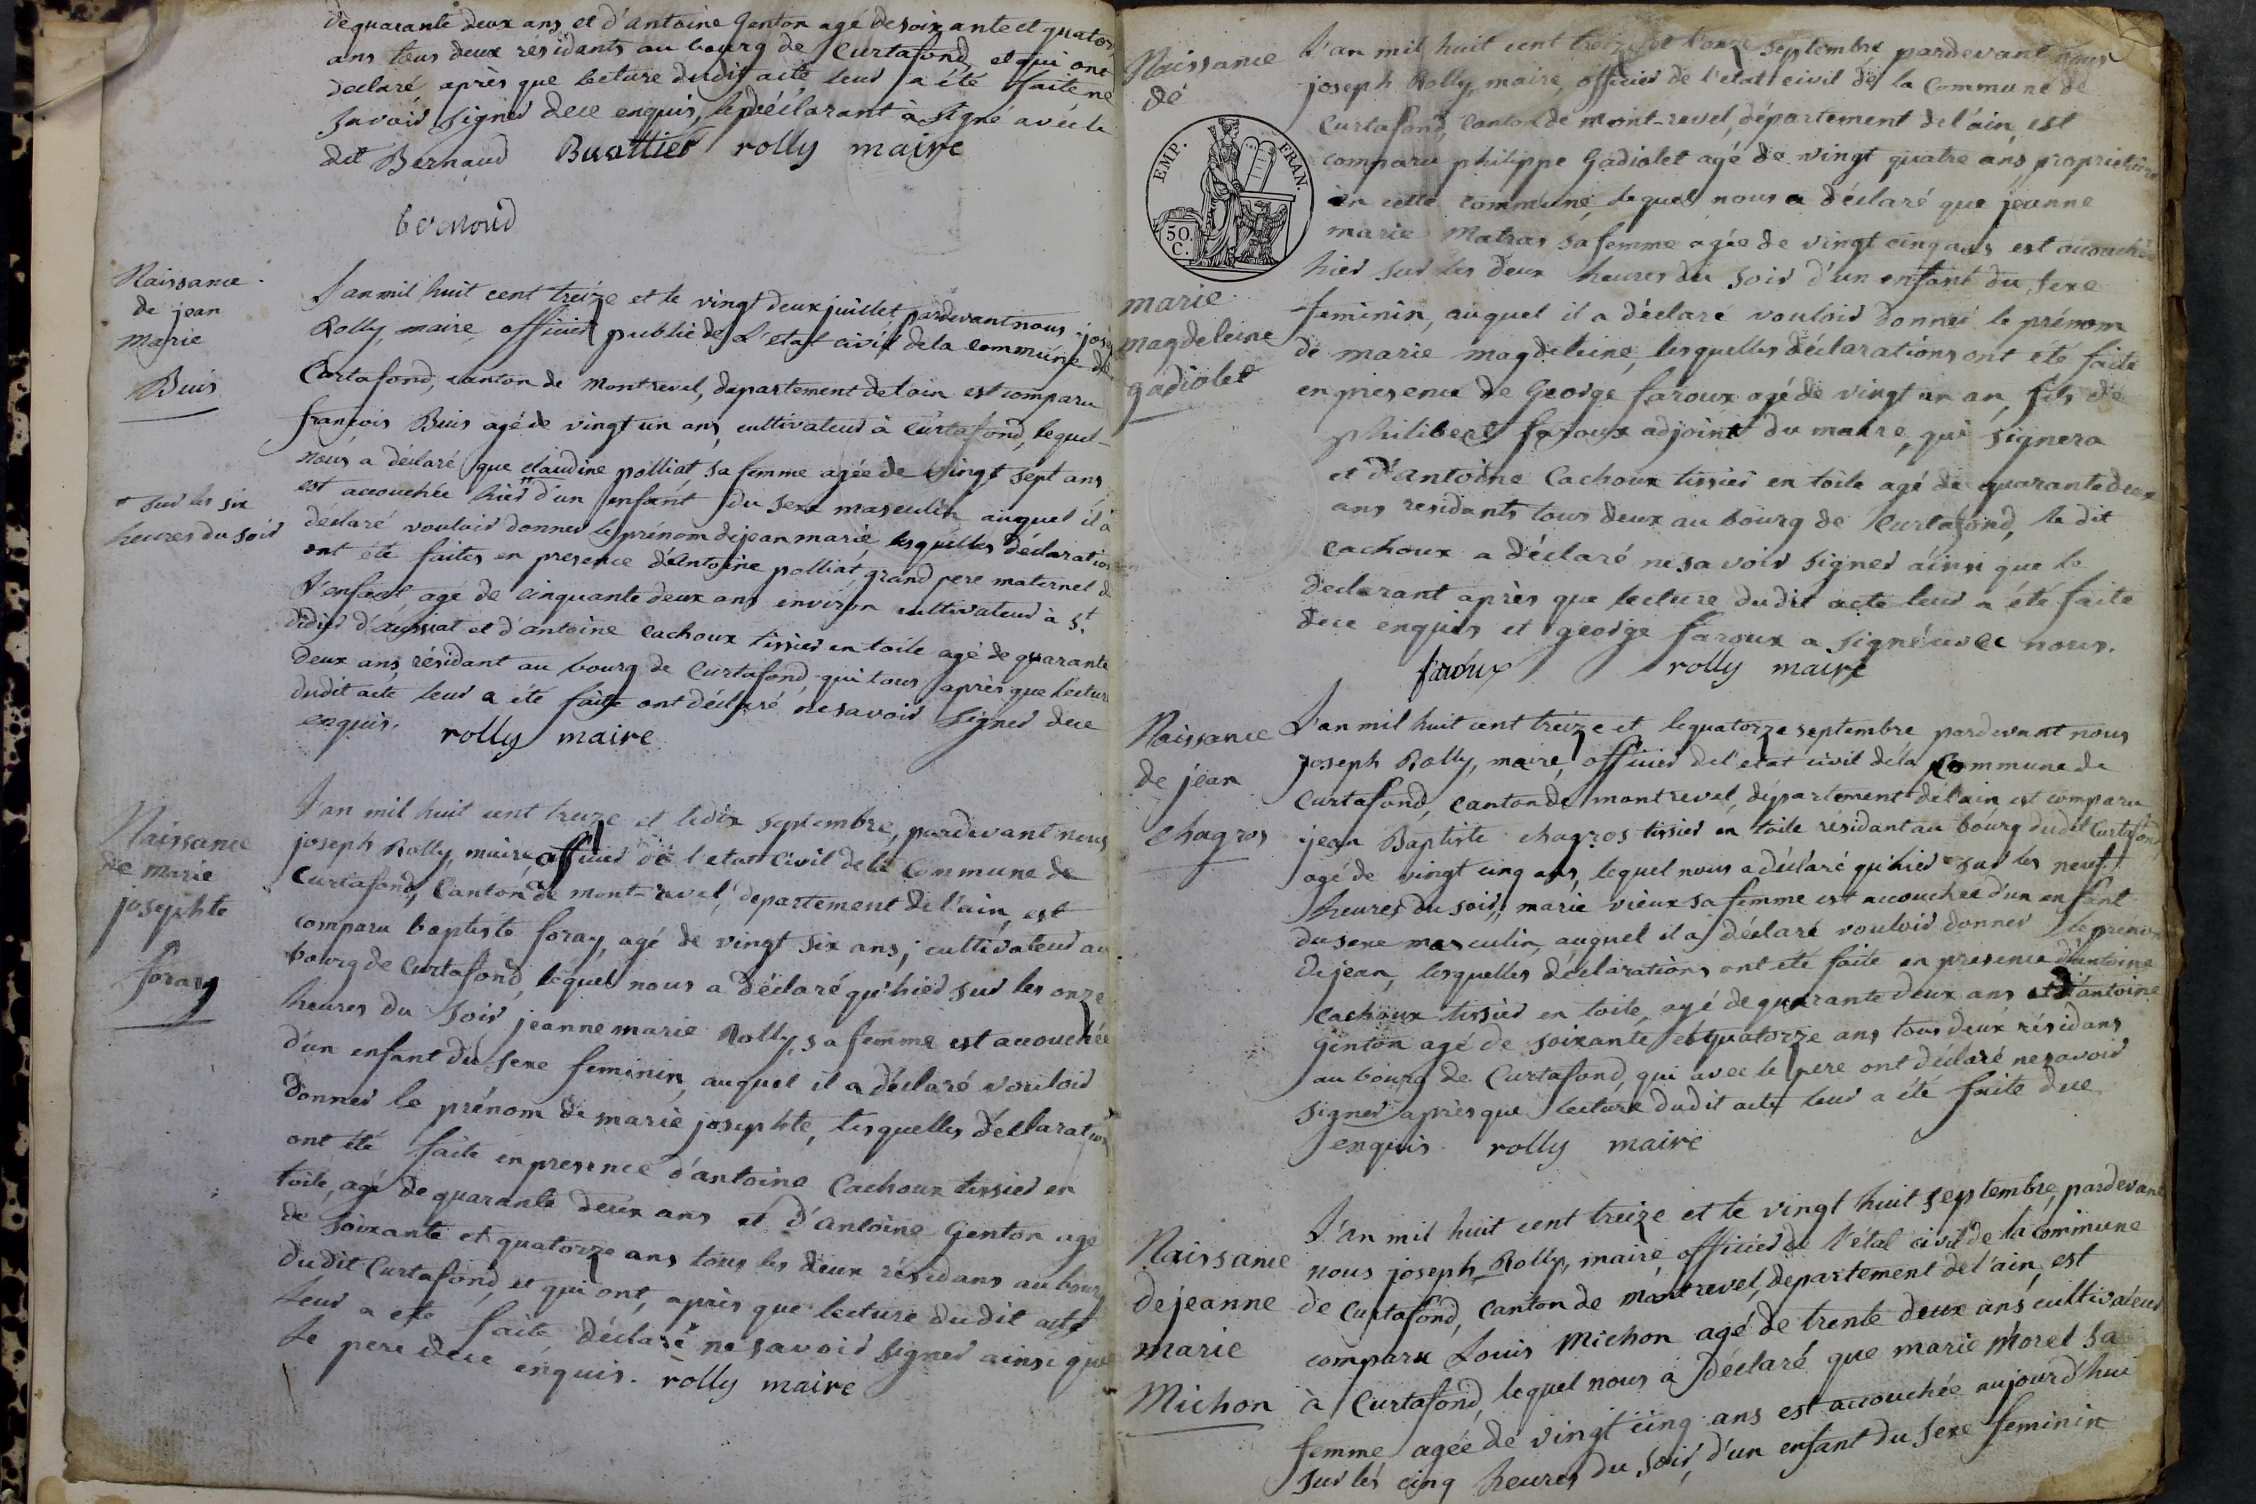 de quarante deux ans et d'antoine Genton agé de soixante et quator
ans tous deux résidants au bourg de Curtafond, et qui ont
declaré après que lecture dudit acte leur a été faite ne
savoir signer de ce enquis, le déclarant à signé avec le
dit Bernaud Buattier rolly maire
bernoud
Naissance
de jean
marie
Buis
L'an mil huit cent treize et le vingt deux juillet pardevant nous jos
Rolly, maire officier public de L'etat civil de la commune de
Curtafond, canton de Montrevel, departement de lain est comparu
françois Buis agé de vingt un ans, cultivateur à Curtafond, lequel
nous a déclaré que claudine polliat, sa femme agée de vingt sept ans
est accouchée hier + d'un enfant du sexe masculin auquel il à
+ sur les six
heures du soir
déclaré vouloir donner le prénom de jean marie lesquelles déclaration
ont été faites en presence d'Antoine polliat, grand pere maternel d
L'enfant agé de cinquante deux ans environ cultivateur à St
didier d'aussiat et d'antoine cachoux tissier en toile agé de quarante
deux ans, résidant au bourg de Curtafond qui tous après que lectur
dudit acte leur a été faite ont déclaré ne savoir signer de ce
enquis. rolly maire
Naissance
de marie
josephte
foray
L'an mil huit cent treize et le dix septembre, pardevant nous
joseph Rolly, maire, officier de l'etat civil de la Commune de
Curtafond, Canton de mont-revel, departement de l'ain, est
comparu baptiste foray, agé de vingt six ans, cultivateur au
bourg de Curtafond, lequel nous a déclaré qu'hier sur les onze
heures du soir jeanne marie Rolly, sa femme est accouchée
d'un enfant du sexe feminin, auquel il a déclaré vouloir
donner le prénom de marie josephte, lesquelles déclaration
ont été faite en presence d'antoine Cachoux tissier en
toile, agé de quarante deux ans et d'antoine Genton agé
de soixante et quatorze ans tous les deux résidans au bour
dudit Curtafond, et qui ont, après que lecture dudit acte
leur a été faite, déclaré ne savoir signer ainsi que
le pere de ce enquis. rolly maire
Naissance
de
EMP. FRAN.
50.
C.
marie
magdeleine
gadiolet
L'an mil huit cent treize et l'onze septembre pardevant nous
joseph Rolly, maire, officier de l'etat civil de la Commune de
Curtafond, Canton de mont-revel, département de l'ain, est
comparu philippe Gadiolet agé de vingt quatre ans propriétaire
en cette commune, lequel nous a déclaré que jeanne
marie Matras sa femme agée de vingt cinq ans est accouchée
hier sur les deux heures du soir d'un enfant du sexe
feminin, auquel il a déclaré vouloir donner le prénom
de marie magdeleine, lesquelles déclarations ont été faite
en presence de George faroux agé de vingt un an, fils de
philibert faroux adjoint du maire, qui signera
et d'Antoine Cachoux tissier en toile agé de quarante deux
ans residants tous deux au bourg de Curtafond, le dit
cachoux a déclaré ne savoir signer ainsi que le
declarant après que lecture dudit acte leur a été faite
de ce enquis et george faroux a signé avec nous.
faroux rolly maire
Naissance
de jean
chagros
L'an mil huit cent treize et le quatorze septembre pardevant nous
joseph Rolly, maire, officier de l'etat civil de la Commune de
Curtafond, canton de montrevel, département de l'ain est comparu
jean Baptiste chagros tissier en toile résidant au bourg dudit Curtafond
agé de vingt cinq ans, lequel nous a déclaré qu'hier sur les neuf
heures du soir, marie vieux sa femme est accouchée d'un enfant
du sexe masculin, auquel il a déclaré vouloir donner le prénom
de jean, lesquelles déclarations ont été faite en presence d'antoine
cachoux tissier en toile, agé de quarante deux ans et d'antoine
genton agé de soixante et quatorze ans tous deux résidans
au bourg de Curtafond, qui avec le pere ont déclaré ne savoir
signer après que lecture dudit acte leur a été faite de ce
enquis rolly maire
Naissance
de jeanne
marie
Michon
L'an mil huit cent treize et le vingt huit septembre, pardevant
nous joseph Rolly, maire, officier de l'étal civil de la commune
de Curtafond, Canton de montrevel, departement de l'ain, est
comparu Louis Michon agé de trente deux ans cultivateur
à Curtafond, lequel nous a déclaré que marie morel sa
femme agée de vingt cinq ans est accouchée aujourd'hui
sur les cinq heures du soir, d'un enfant du sexe feminin